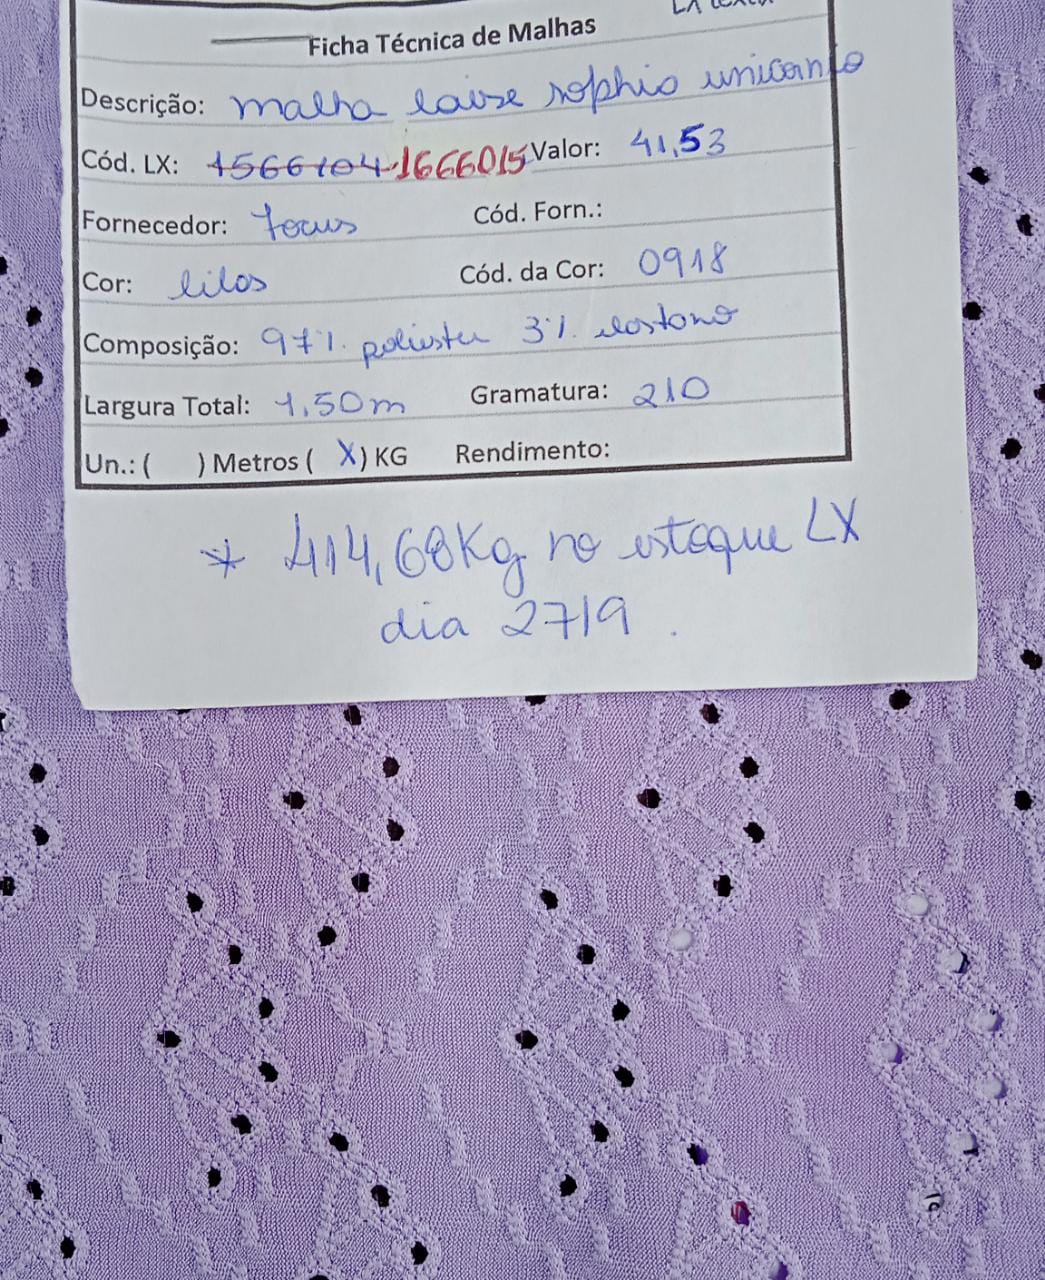 Ficha Técnica de Malhas
Descrição: malha laise sophia unicanto
Cód. LX: 1566104 1666015 Valor: 41,53
Fornecedor: focus Cód. Forn.:
Cor: lilas Cód. da Cor: 0918
Composição: 97% poliester 3% elastano
Largura Total: 1,50m Gramatura: 210
Un.: ( ) Metros ( X ) KG Rendimento:
* 414,68Kg no estoque LX
dia 27/9.